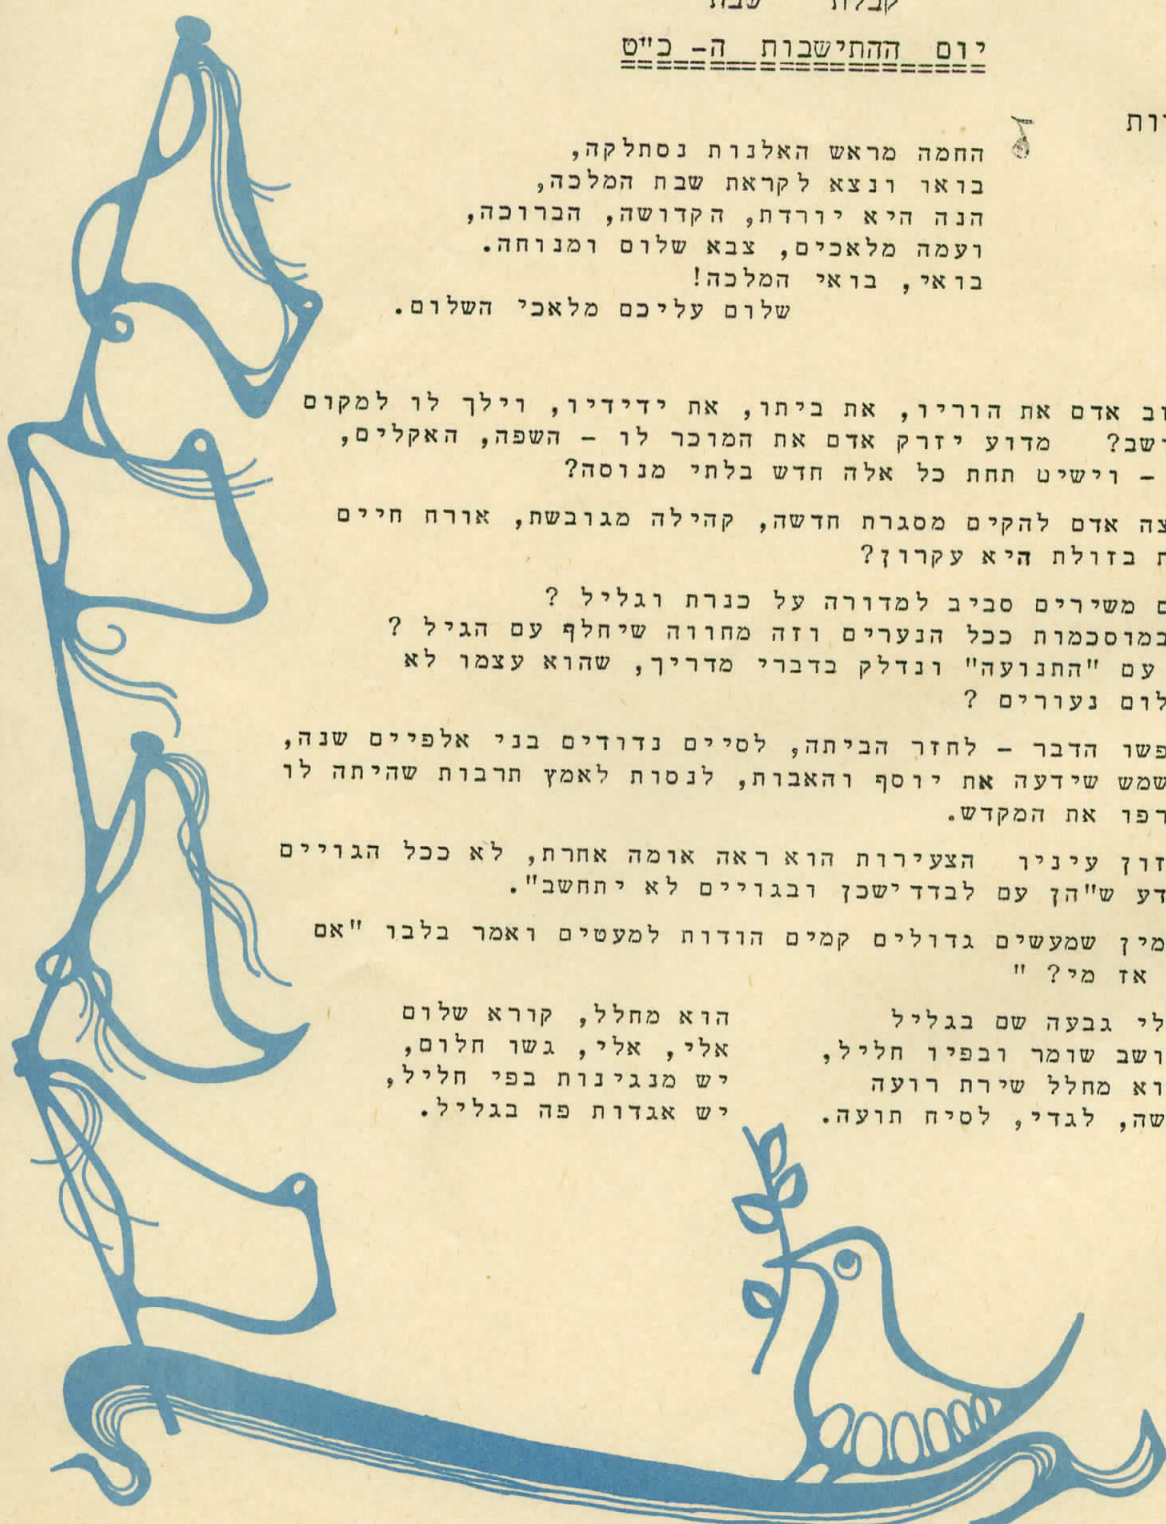 קבלת שבת
יום ההתישבות ה- כ"ט
החמה מראש האלנות נסתלקה,
בואו ונצא לקראת שבת המלכה,
הנה היא יורדת, הקדושה, הברוכה,
ועמה מלאכים, צבא שלום ומנוחה.
בואי, בואי המלכה!
שלום עליכם מלאכי השלום.
וב אדם את הוריו, את ביתו, את ידידיו, וילך לו למקום
ישב? מדוע יזרק אדם את המוכר לו - השפה, האקלים,
- וישיט תחת כל אלה חדש בלתי מנוסה?
צה אדם להקים מסגרת חדשה, קהילה מגובשת, אורח חיים
ת בזולת היא עקרון?
ם משירים סביב למדורה על כנרת וגליל ?
במוסכמות ככל הנערים וזה מחווה שיחלף עם הגיל ?
עם "התנועה" ונדלק בדברי מדריך, שהוא עצמו לא
לום נעורים ?
פשו הדבר - לחזר הביתה, לסיים נדודים בני אלפיים שנה,
שמש שידעה את יוסף והאבות, לנסות לאמץ תרבות שהיתה לו
רפו את המקדש.
זון עיניו הצעירות הוא ראה אומה אחרת, לא ככל הגויים
דע ש"הן עם לבדד ישכן ובגויים לא יתחשב".
מין שמעשים גדולים קמים הודות למעטים ואמר בלבו "אם
אז מי? "
לי גבעה שם בגליל
ושב שומר ובפיו חליל,
וא מחלל שירת רועה
שה, לגדי, לסיח תועה.
הוא מחלל, קורא שלום
אלי, אלי, גשו חלום,
יש מנגינות בפי חליל,
יש אגדות פה בגליל.